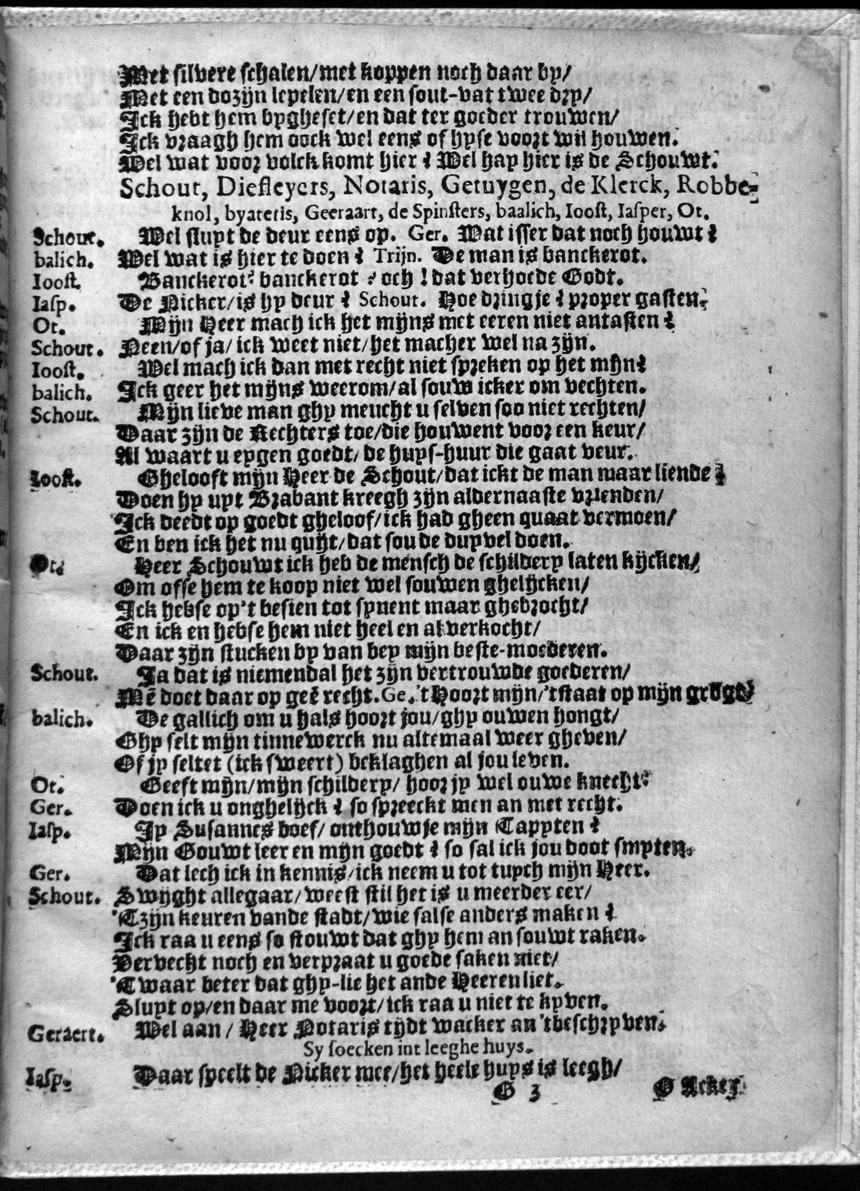 Met silvere schalen/met koppen noch daar by/
Met een dozijn lepelen/en een sout-vat twee dry/
Ick hebt hem bygheset/en dat ter goeder trouwen/
Ick vraagh hem oock wel eens of hyse voort wil houwen.
Wel wat voor volck komt hier? Wel hay hier is de Schouwt.
Schout, Diefleyers, Notaris, Getuygen, de Klerck, Robbe-
knol, byateris, Geeraart, de Spinsters, baalich, Ioost, Iasper, Ot.
Schout. Wel sluyt de deur eens op. Ger. Wat isser dat noch houwt?
balich. Wel wat is hier te doen? Trijn. De man is banckerot.
Ioost. Banckerot? banckerot? och! dat verhoede Godt.
Iasp. De Nicker/is hy deur? Schout. Hoe dring je? proper gasten.
Ot. Mijn Heer mach ick het mijns met eeren niet antasten?
Schout. Neen/of ja/ick weet niet/het macher wel na zijn.
Ioost. Wel mach ick dan met recht niet spreken op het mijn?
balich. Ick geer het mijns weerom/al souw icker om vechten.
Schout. Mijn lieve man ghy meucht u selven soo niet rechten/
Daar zijn de Rechters toe/die houwent voor een keur/
Al waart u eygen goedt/de huys-huur die gaat veur.
Ioost. Ghelooft mijn Heer de Schout/dat ickt de man maar liende?
Doen hy uyt Brabant kreegh zijn aldernaaste vrienden/
Ick deedt op goedt gheloof/ick had gheen quaat vermoen/
En ben ick het nu quijt/dat sou de duyvel doen.
Ot. Heer Schouwt ick heb de mensch de schildery laten kijcken/
Om offe hem te koop niet wel souwen ghelijcken/
Ick hebse op't besien tot synent maar ghebrocht/
En ick en hebse hem niet heel en al verkocht/
Daar zijn stucken by van bey mijn beste-moederen.
Schout. Ja dat is niemendal het zijn vertrouwde goederen/
Mē doet daar op geē recht. Ge. 't Hoort mijn/'tstaat op mijn grōgt/
balich. De gallich om u hals hoort jou/ghy ouwen hongt/
Ghy selt mijn tinnewerck nu altemaal weer gheven/
Of jy seltet (ick sweert) beklaghen al jou leven.
Ot. Geeft mijn/mijn schildery/hoor jy wel ouwe knecht?
Ger. Doen ick u onghelijck? so spreeckt men an met recht.
Iasp. Jy Susannes boef/onthouwje mijn Tappten?
Mijn Gouwt leer en mijn goedt? so sal ick jou doot smyten.
Ger. Dat lech ick in kennis/ick neem u tot tuych mijn Heer.
Schout. Swijght allegaar/weest stil het is u meerder eer/
'Tzijn keuren vande stadt/wie salse anders maken?
Ick raa u eens so stouwt dat ghy hem an souwt raken.
Vervecht noch en verpraat u goede saken niet/
'Twaar beter dat ghy-lie het ande Heeren liet.
Sluyt op/en daar me voort/ick raa u niet te kyven.
Geraert. Wel aan/Heer Notaris tijdt wacker an 'tbeschryven.
Sy soecken int leeghe huys.
Iasp. Daar speelt de Nicker mee/het heele huys is leegh/
G 3 O Acker